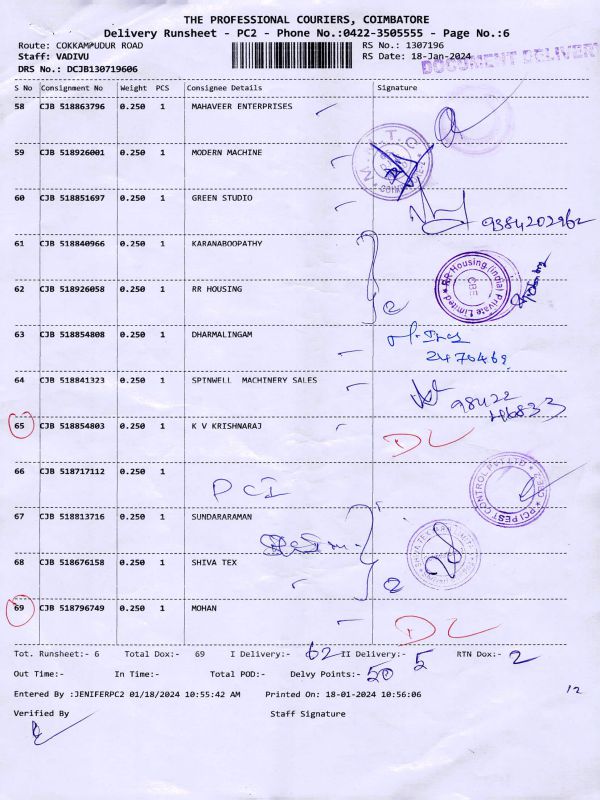 THE PROFESSIONAL COURIERS, COIMBATORE
Delivery Runsheet - PC2 - Phone No.:0422-3505555 - Page No.:6
Route: COKKAMPUDUR ROAD RS No.: 1307196
Staff: VADIVU RS Date: 18-Jan-2024
DOCUMENT DELIVERY
DRS No.: DCJB130719606
S No Consignment No Weight PCS Consignee Details Signature
58 CJB 518863796 0.250 1 MAHAVEER ENTERPRISES
59 CJB 518926001 0.250 1 MODERN MACHINE
60 CJB 518851697 0.250 1 GREEN STUDIO
9384202962
61 CJB 518840966 0.250 1 KARANABOOPATHY
62 CJB 518926058 0.250 1 RR HOUSING
RR Housing (India) Private Limited
CBE
63 CJB 518854808 0.250 1 DHARMALINGAM
2470469
64 CJB 518841323 0.250 1 SPINWELL MACHINERY SALES
98422
46833
65 CJB 518854803 0.250 1 K V KRISHNARAJ DL
66 CJB 518717112 0.250 1
PCI
PCI PEST CONTROL PVT LTD
67 CJB 518813716 0.250 1 SUNDARARAMAN
68 CJB 518676158 0.250 1 SHIVA TEX
69 CJB 518796749 0.250 1 MOHAN DL
Tot. Runsheet:- 6 Total Dox:- 69 I Delivery:- 62 II Delivery:- 5 RTN Dox:- 2
Out Time:- In Time:- Total POD:- Delvy Points:- 50
12
Entered By :JENIFERPC2 01/18/2024 10:55:42 AM Printed On: 18-01-2024 10:56:06
Verified By Staff Signature